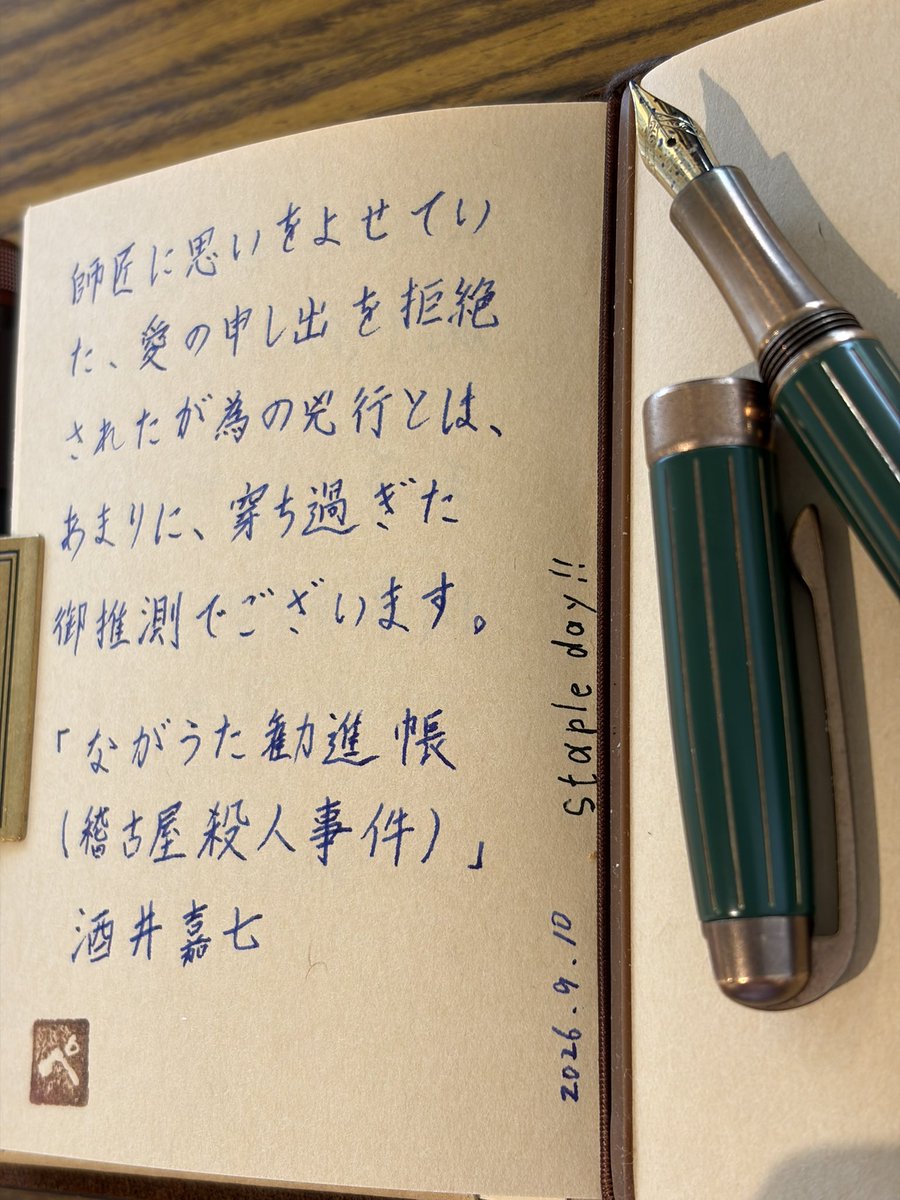 師匠に思いをよせてい
た、愛の申し出を拒絶
されたが為の兇行とは、
あまりに、穿ち過ぎた
御推測でございます。
「ながうた勧進帳
(稽古屋殺人事件)」
酒井嘉七
ペ
staple day!!
2026.9.10